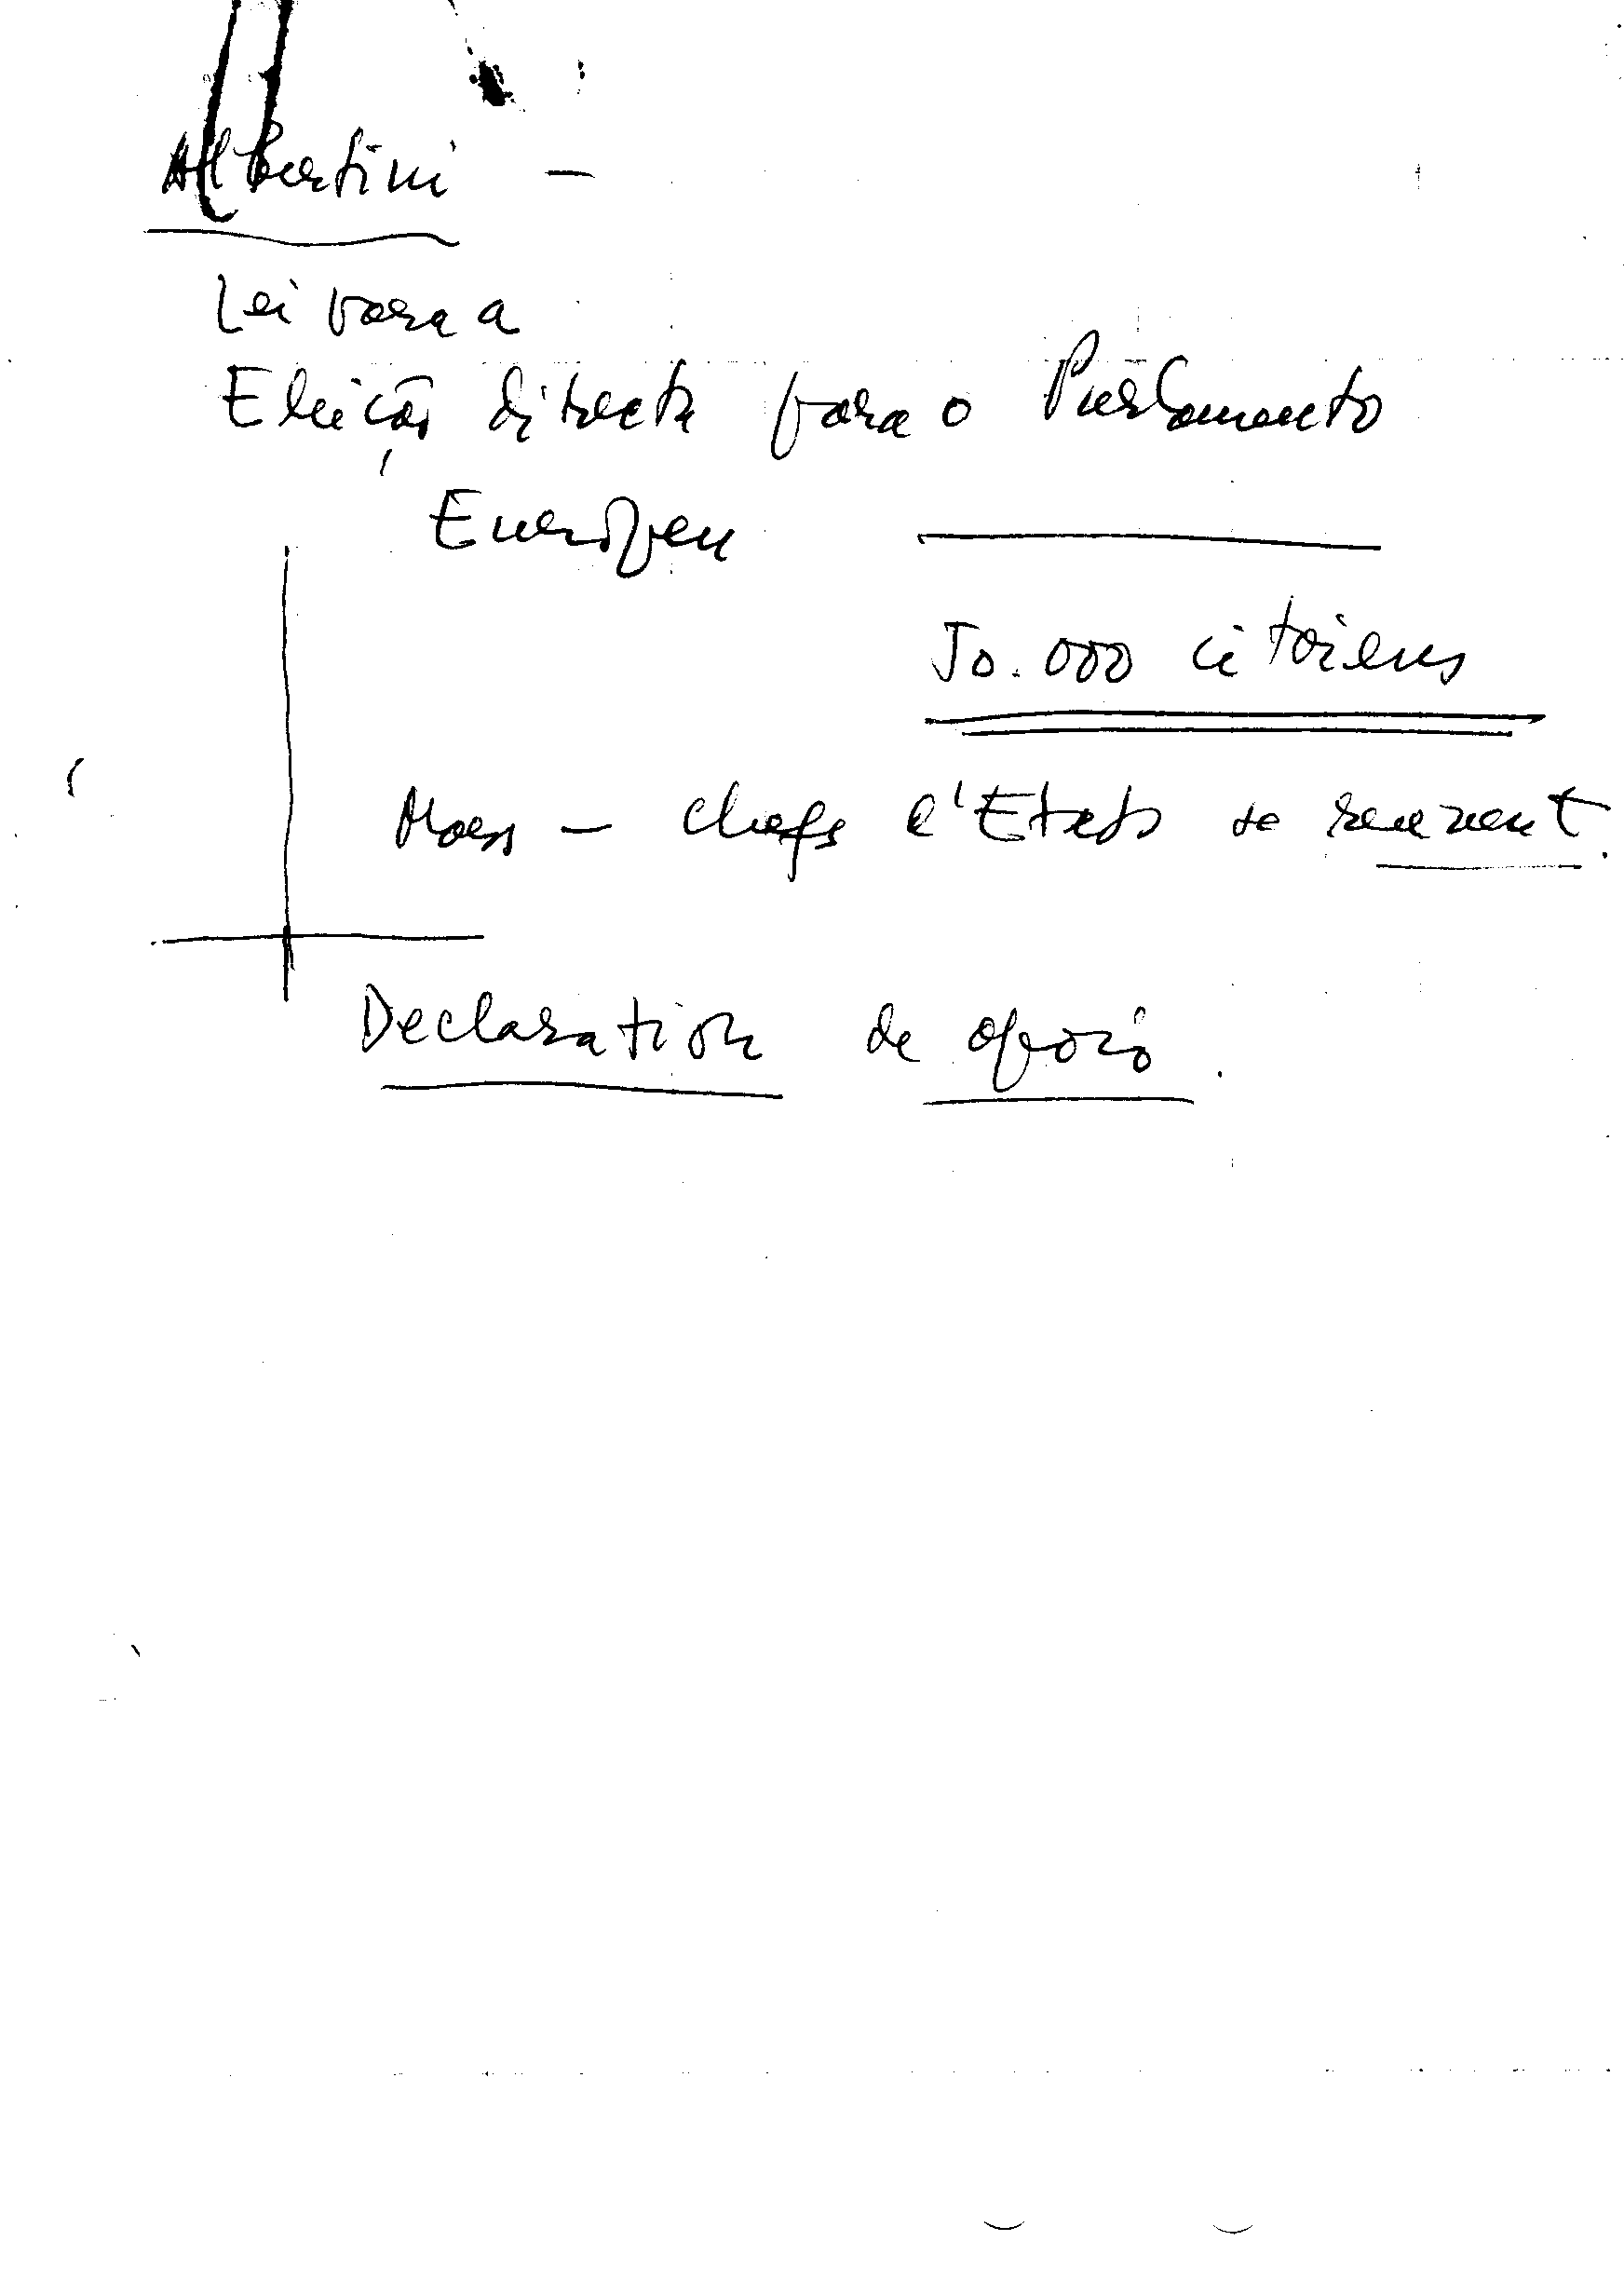 Albertini -
Lei para a
Eleição directa para o Parlamento
Europeu
50.000 citoiens
Mars - chefs d'Etats se reunent.
Declaration de apoio.